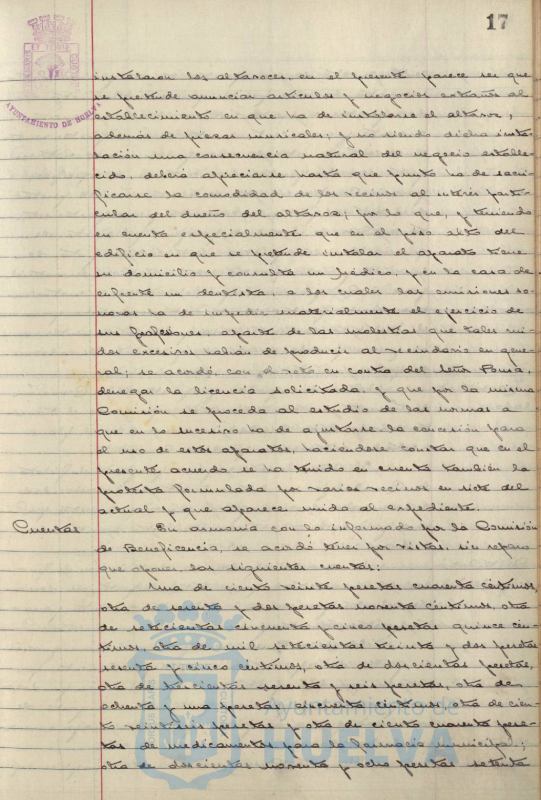 17
AYUNTAMIENTO DE HUELVA
instalaron los altavoces, en el presente parece ser que
se pretende anunciar artículos y negocios extraños al
establecimiento en que ha de instalarse el altavoz,
además de piezas musicales; y no siendo dicha insta-
lación una consecuencia natural del negocio estable-
cido, deberá apreciarse hasta que punto ha de sacri-
ficarse la comodidad de los vecinos al interés parti-
cular del dueño del altavoz; por lo que, y teniendo
en cuenta especialmente que en el piso alto del
edificio en que se pretende instalar el aparato tiene
su domicilio y consulta un Médico, y en la casa de
enfrente un dentista, a los cuales las emisiones so-
noras ha de impedir materialmente el ejercicio de
sus profesiones, aparte de las molestias que tales rui-
dos excesivos habían de producir al vecindario en gene-
ral; se acordó, con el voto en contra del Señor
denegar la licencia solicitada, y que por la misma
Comisión se proceda al estudio de las normas a
que en lo sucesivo ha de ajustarse la concesión para
el uso de estos aparatos, haciéndose constar que en el
presente acuerdo se ha tenido en cuenta también la
protesta formulada por varios vecinos en siete del
actual y que aparece unida al expediente.
Cuentas
En armonía con lo informado por la Comisión
de Beneficencia, se acordó tener por vistas, sin reparo
que oponer, las siguientes cuentas:
Una de ciento veinte pesetas cuarenta céntimos,
otra de sesenta y dos pesetas noventa céntimos, otra
de setecientas cincuenta y cinco pesetas quince cén-
timos, otra de mil setecientas treinta y dos pesetas
sesenta y cinco céntimos, otra de doscientas pesetas,
otra de trescientas sesenta y seis pesetas, otra de
ochenta y una pesetas cincuenta céntimos, otra de cien-
to pesetas y otra de ciento cuarenta pese-
tas de medicamentos para la farmacia municipal;
otra de doscientas noventa y ocho pesetas setenta
Ayuntamiento de
HUELVA